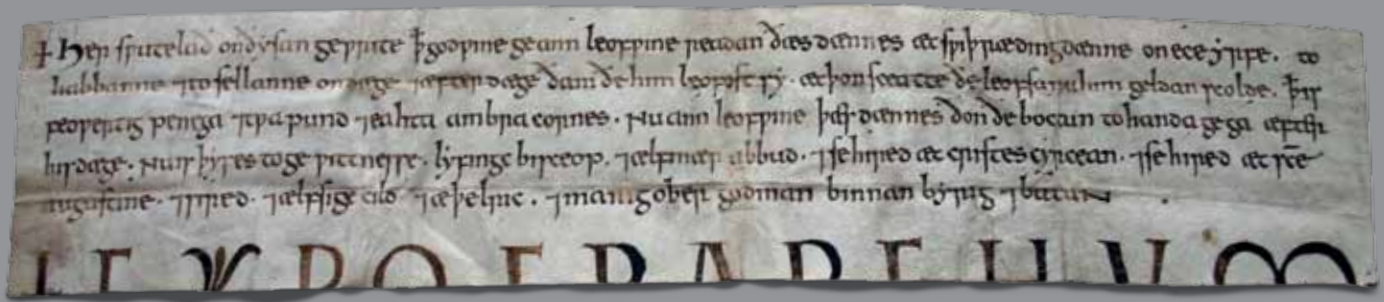 + Her swutelað on ðysan gewrite ꝥ godwine geann leofwine readan ðæs dænnes æt swiþrædingdænne on ece yrfe. to
habbanne ⁊ to sellanne on dæge ⁊ æfter dæge ðam ðe him leofost sy. æt þon sceatte ðe leofsunu him geldan scolde. ꝥ is
feowertig penega ⁊ twa pund ⁊ eahta ambra cornes. Nu ann leofwine þæs dænnes ðon ðe bocun to handa gega æfter
his dæge. Nu is þyses to gewittnesse. lyfingc bisceop. ⁊ ælfmær abbud. ⁊ se hired æt cristes cyrcean. ⁊ se hired æt sc̄e
augustine. ⁊ sired. ⁊ ælfsige cild ⁊ æþelric. ⁊ manig oþer godman binnan byrig ⁊ butan
Y R O G R A P H V M